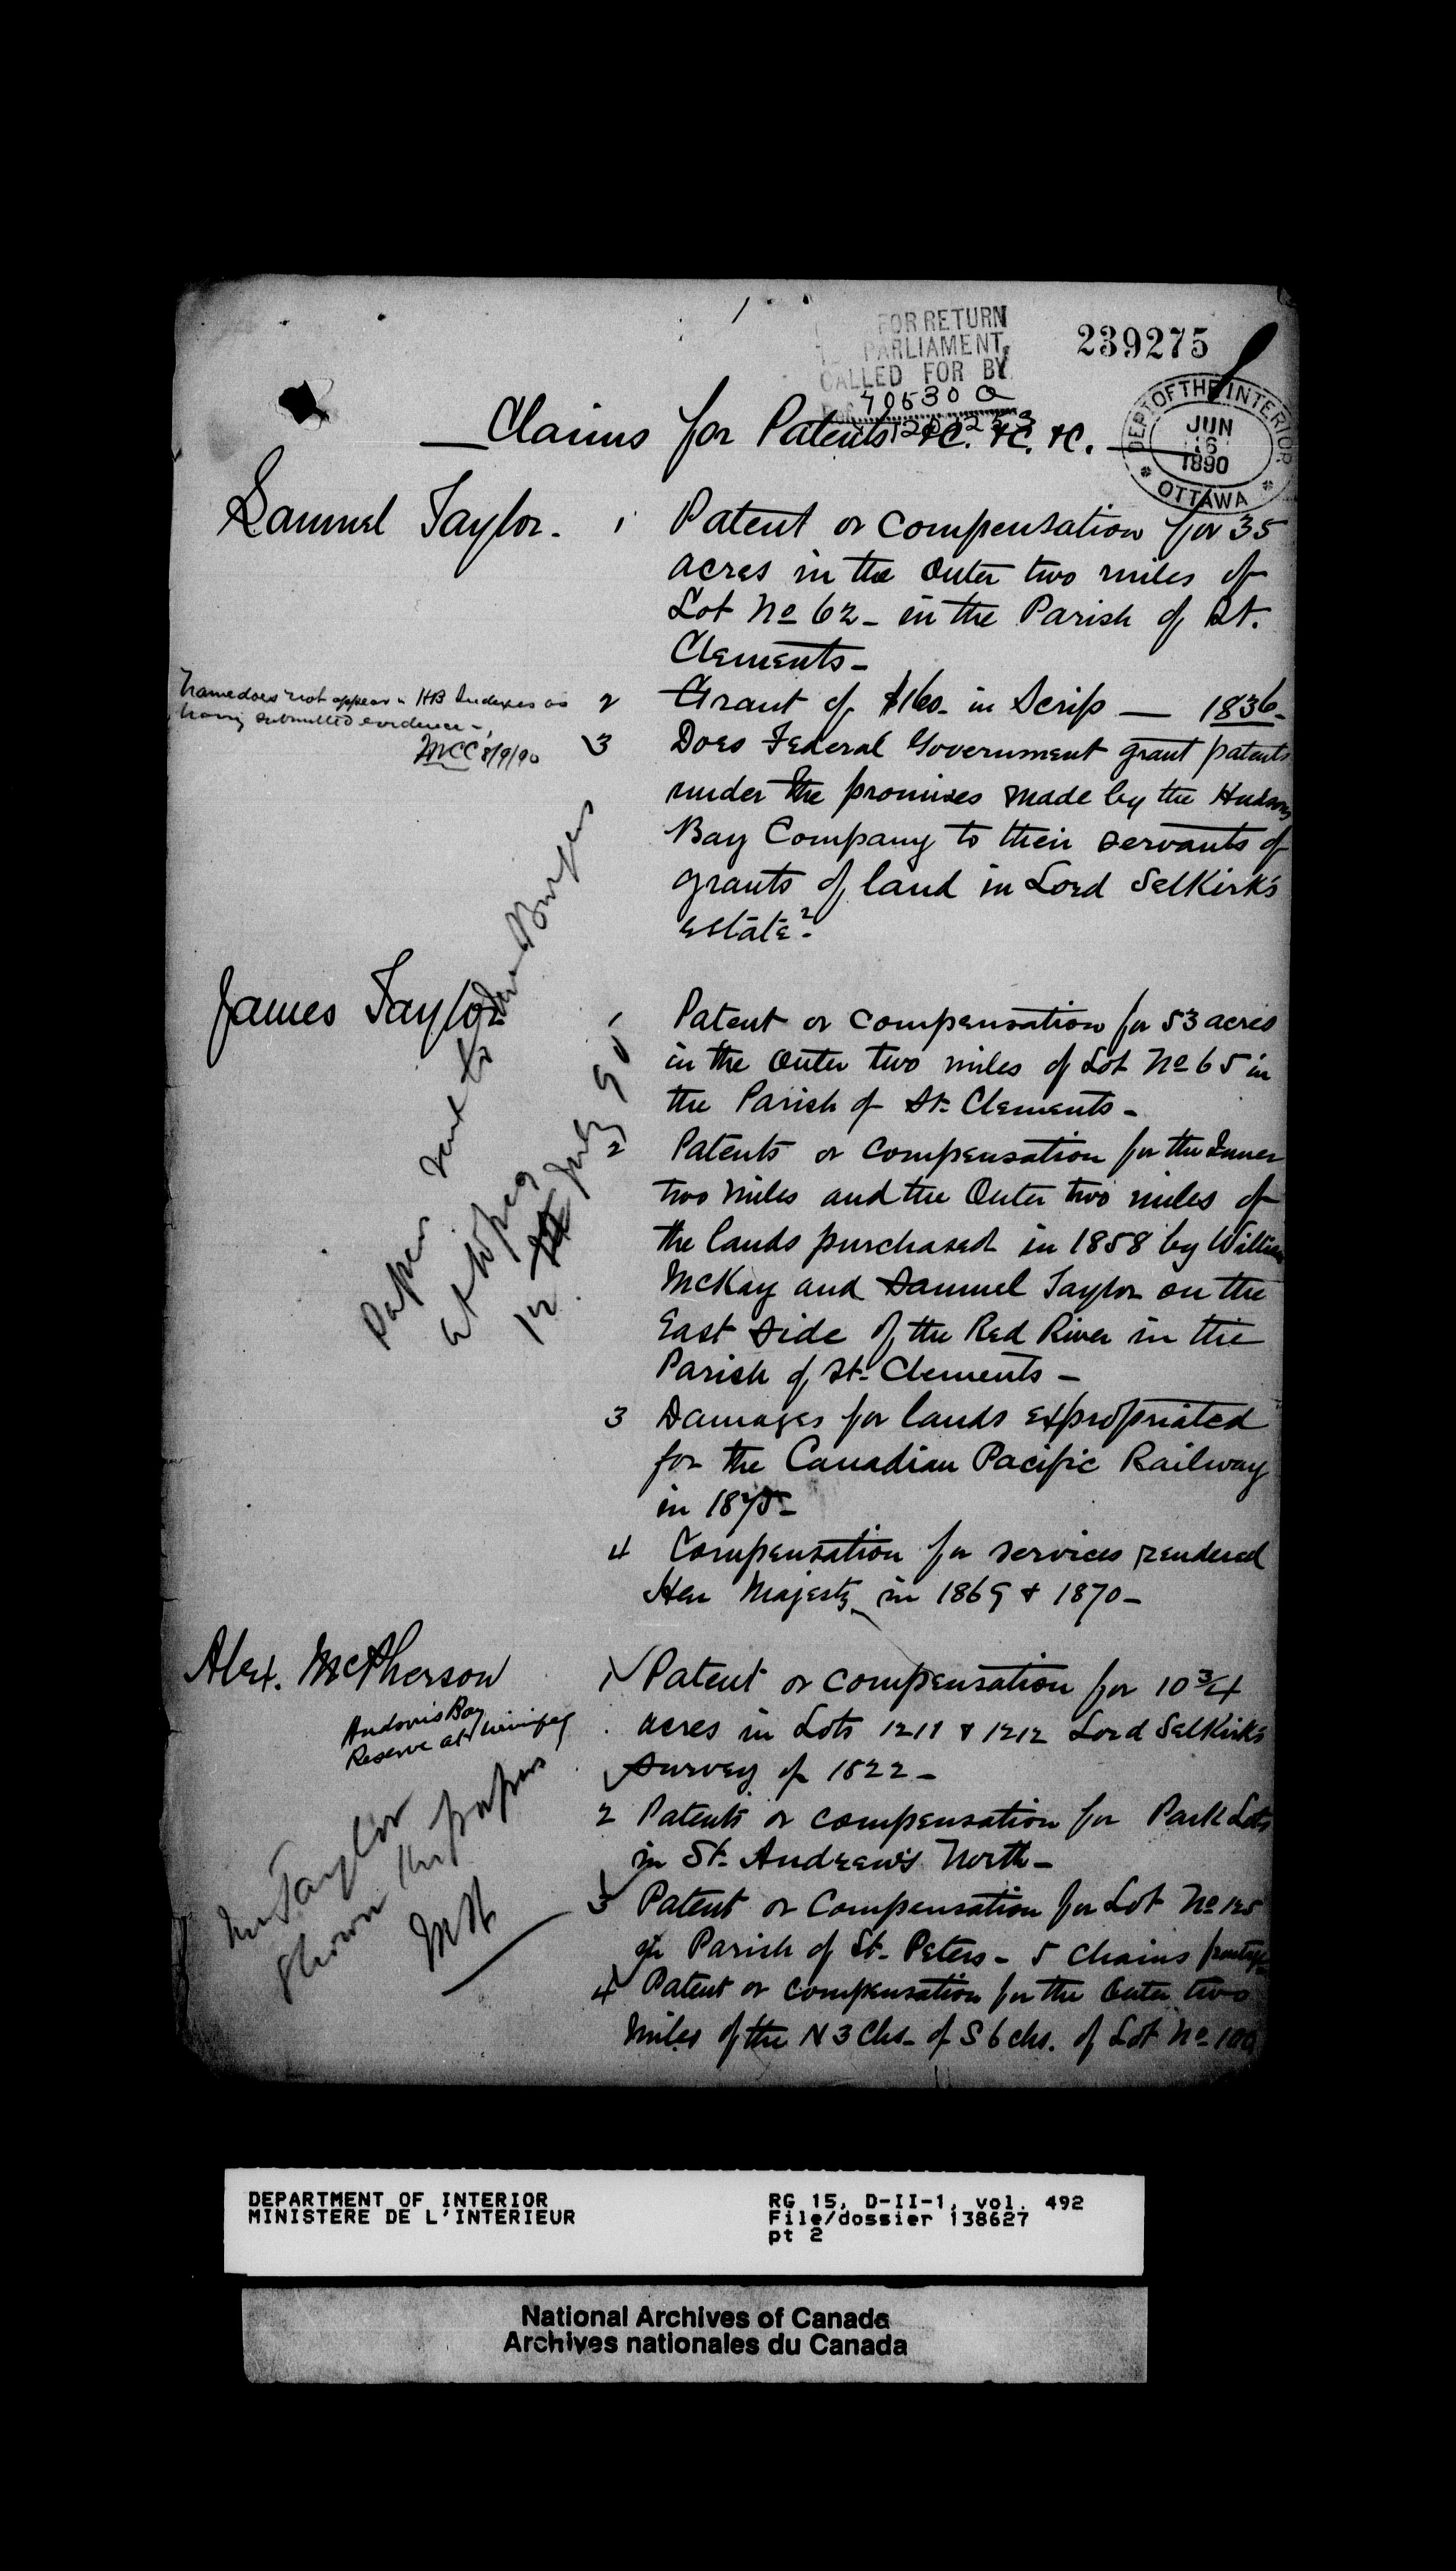 FOR RETURN
PARLIAMENT,
CALLED FOR BY
239275
DEPT OF THE INTERIOR
JUN
16
1890
OTTAWA
Claims for Patents &c. &c. &c.
Samuel Taylor. 1 Patent or compensation for 35
acres in the Outer two miles of
Lot No 62 - in the Parish of St.
Clements -
Name does not appear in HB Indexes as
having submitted evidence -
MCC 8/9/90
2 Grant of $160. in Scrip — 1836 -
3 Does Federal Government grant patents
under the promises made by the Hudsons
Bay Company to their servants of
grants of land in Lord Selkirk's
estate?
James Taylor
1 Patent or compensation for 53 acres
in the Outer two miles of Lot No 65 in
the Parish of St. Clements -
2 Patents or compensation for the Inner
two miles and the Outer two miles of
the lands purchased in 1858 by William
McKay and Samuel Taylor on the
East side of the Red River in the
Parish of St. Clements -
3 Damages for lands expropriated
for the Canadian Pacific Railway
in 1875 -
4 Compensation for services rendered
Her Majesty in 1869 & 1870 -
Paper sent to Mr Burgess
at Wpeg
12 July 90
Alex. McPherson
1 Patent or compensation for 10 3/4
acres in Lots 1211 & 1212 Lord Selkirk's
Survey of 1822 -
Hudson's Bay
Reserve at Winnipeg
2 Patents or compensation for Park Lots
in St. Andrew's North -
3 Patent or Compensation for Lot No 125
Parish of St. Peters - 5 chains frontage
4 Patent or compensation for the Outer two
miles of the N 3 Chs. of S 6 chs. of Lot No
Mr Taylor
shown the papers
DEPARTMENT OF INTERIOR
MINISTERE DE L'INTERIEUR
RG 15, D-II-1, vol. 492
File/dossier 138627
pt 2
National Archives of Canada
Archives nationales du Canada